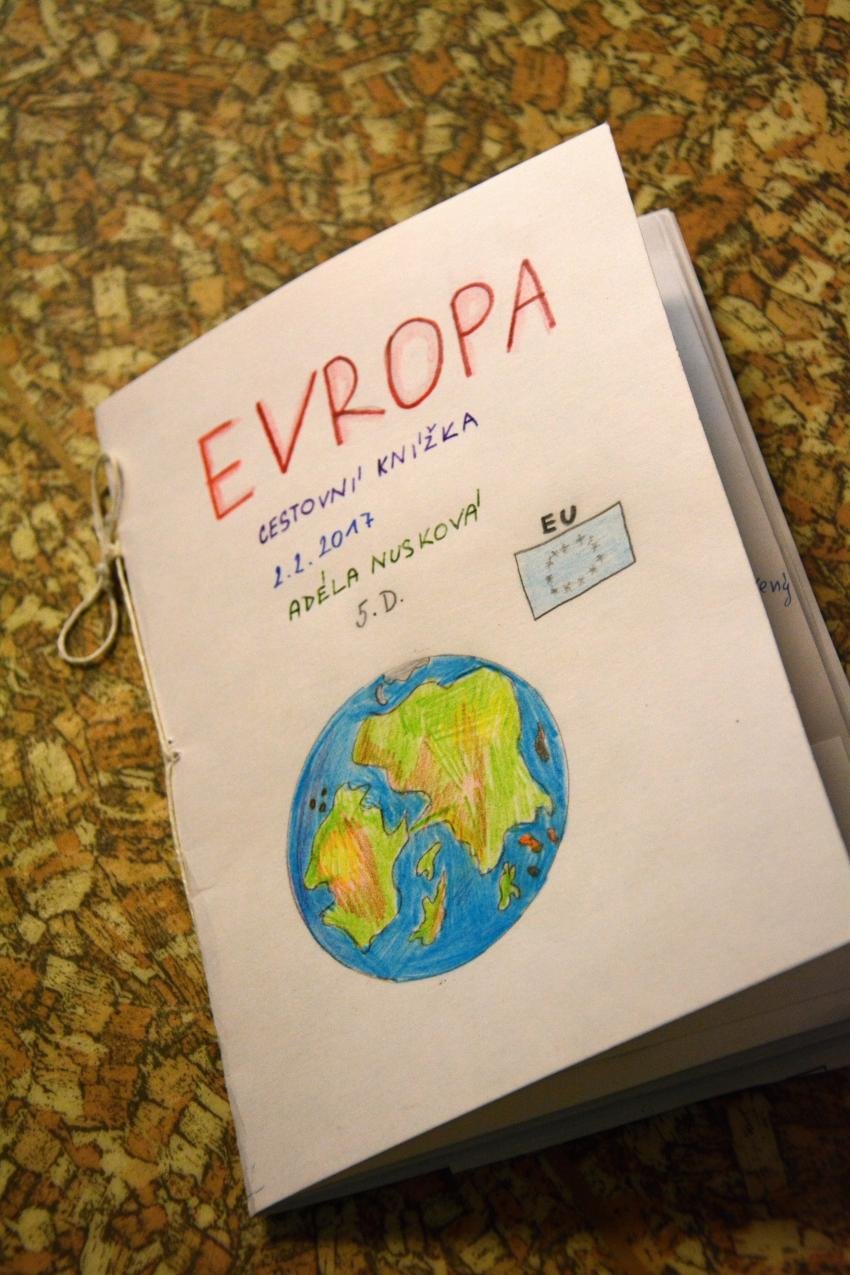 EVROPA
CESTOVNÍ KNÍŽKA
2.2.2017
ADÉLA NUSKOVÁ
5.D.
EU